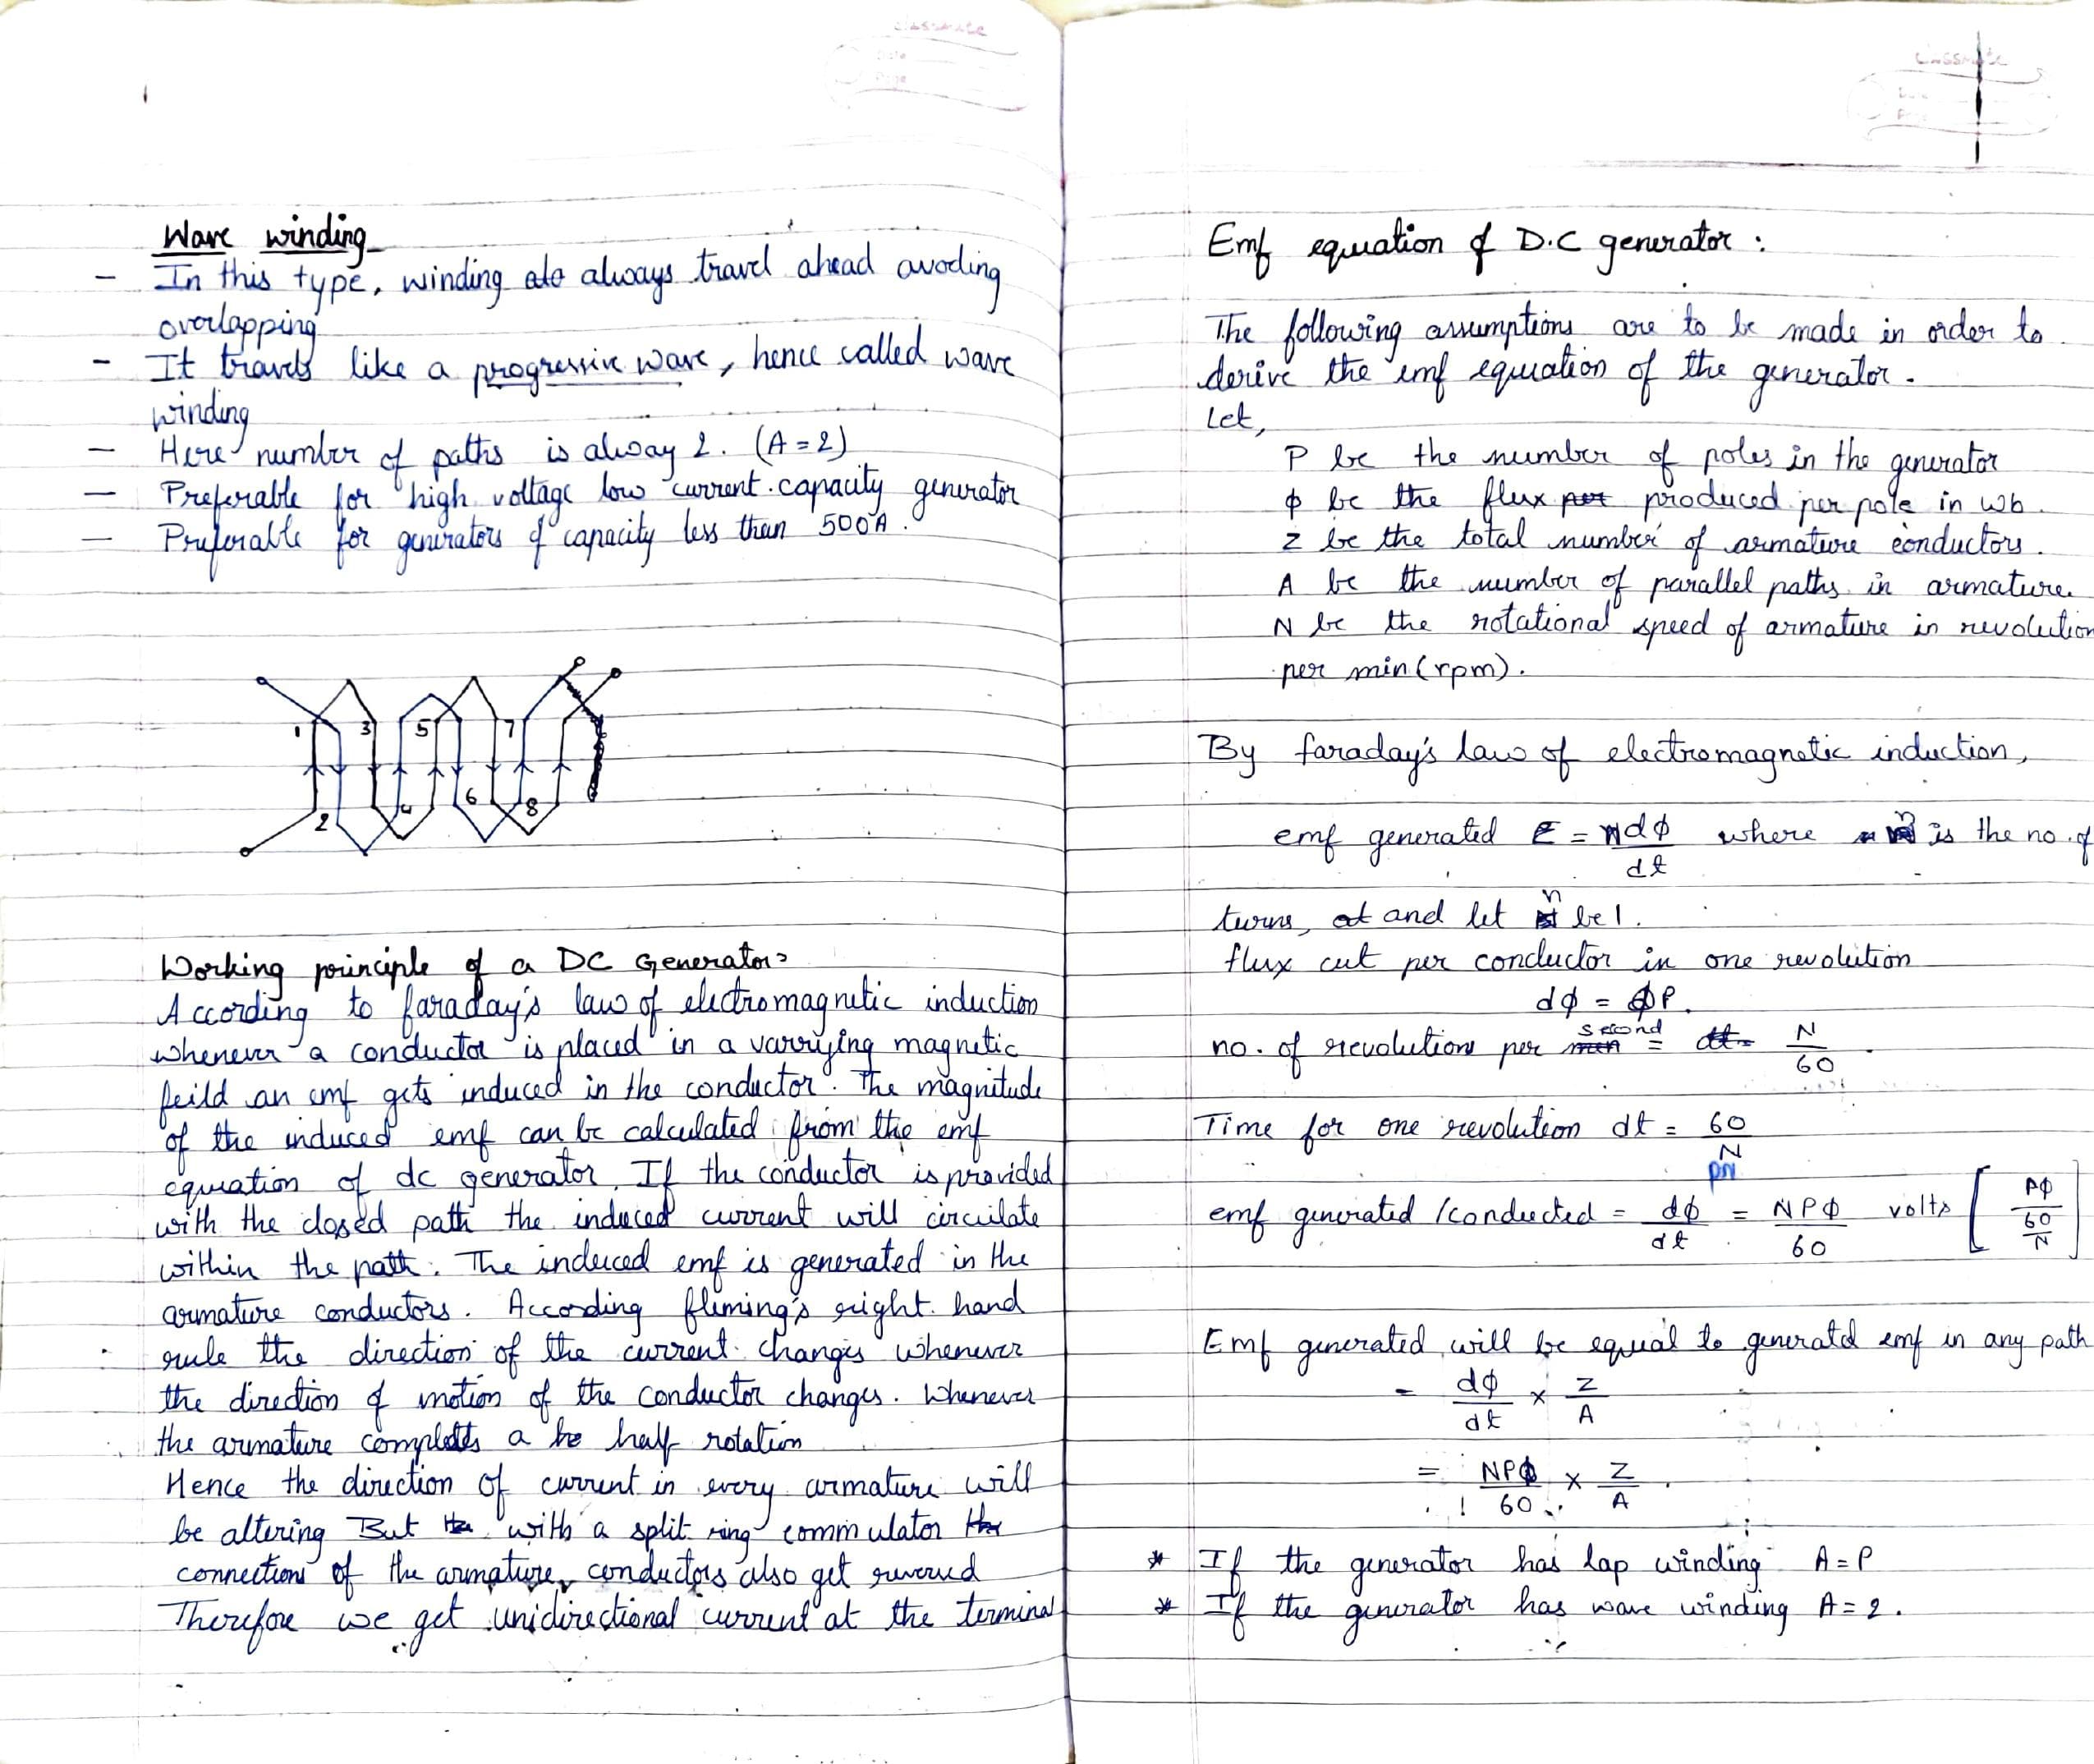 classmate
Date
Page
Wave winding
- In this type, winding always travel ahead avoding
overlapping
- It travels like a progressive wave, hence called wave
winding
- Here number of paths is alway 2. (A = 2)
- Preferable for high voltage low current capacity generator
- Preferable for generators of capacity less than 500A.
1 3 5 7
2 4 6 8
Working principle of a DC Generator:
According to faraday's law of electromagnetic induction
whenever a conductor is placed in a varrying magnetic
feild an emf gets induced in the conductor. The magnitude
of the induced emf can be calculated from the emf
equation of dc generator. If the conductor is provided
with the closed path the induced current will circulate
within the path. The induced emf is generated in the
armature conductors. According fleming's right hand
rule the direction of the current changes whenever
the direction of motion of the conductor changes. Whenever
the armature completes a half rotation
Hence the direction of current in every armature will
be altering But with a split ring commulator
connections of the armature conductors also get reversed
Therefore we get unidirectional current at the terminal
classmate
Date
Page
Emf equation of D.C generator :
The following assumptions are to be made in order to
derive the emf equation of the generator.
Let,
P be the number of poles in the generator
ϕ be the flux produced per pole in wb.
Z be the total number of armature conductors.
A be the number of parallel paths in armature.
N be the rotational speed of armature in revolution
per min (rpm).
By faraday's law of electromagnetic induction,
emf generated E = n dϕ/dt where n is the no. of
turns, and let n be 1.
flux cut per conductor in one revolution
dϕ = ϕP.
no. of revolutions per second = N/60
Time for one revolution dt = 60/N
PN
emf generated /conducted = dϕ/dt = NPϕ/60 volts [Pϕ/(60/N)]
Emf generated will be equal to generatd emf in any path
= dϕ/dt × Z/A
= NPϕ/60 × Z/A.
* If the generator has lap winding A = P
* If the generator has wave winding A = 2.